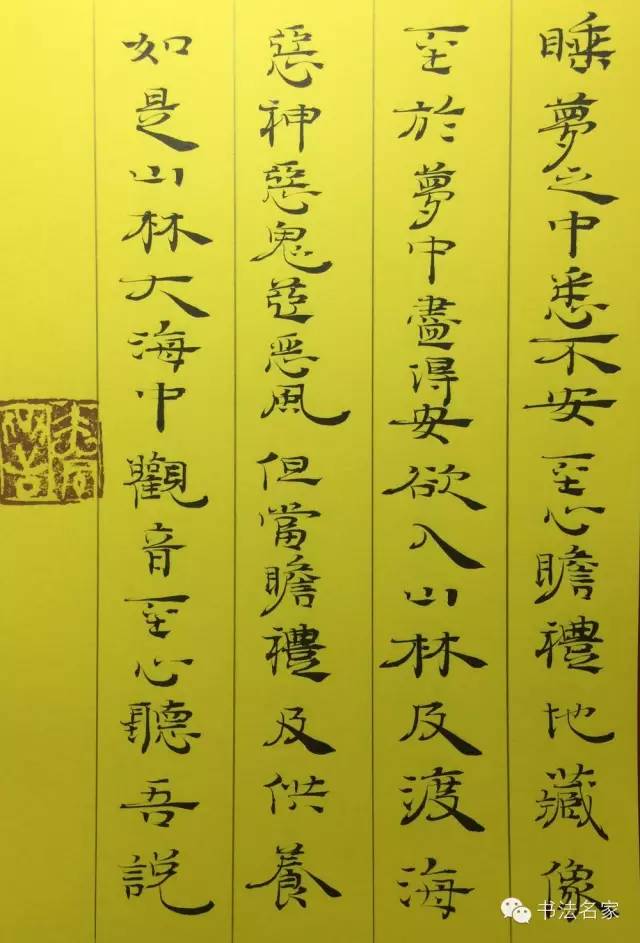 睡夢之中悉不安至心瞻禮地藏像
至於夢中盡得安欲入山林及渡海
惡神惡鬼並惡風但當瞻禮及供養
如是山林大海中觀音至心聽吾說
书法名家